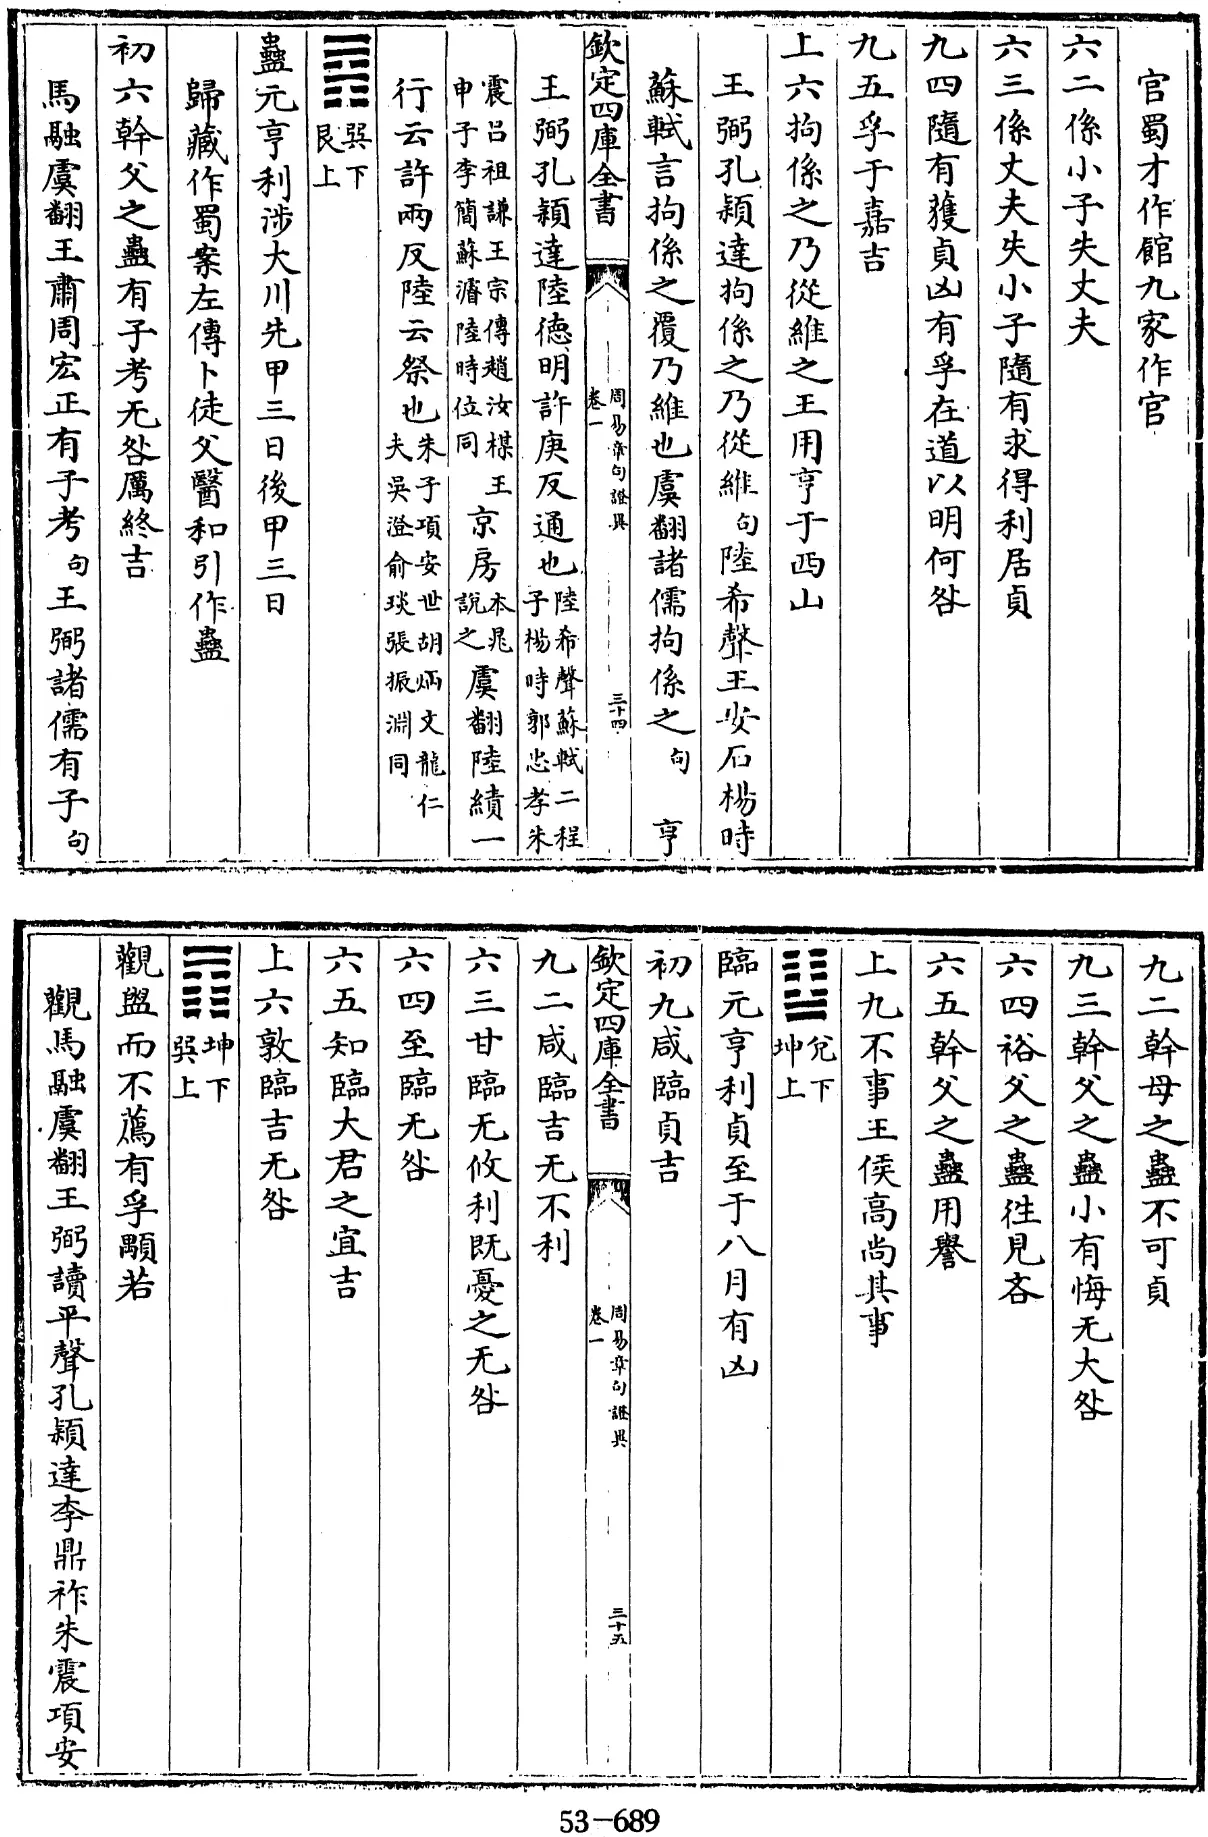 官蜀才作館九家作官
六二係小子失丈夫
六三係丈夫失小子隨有求得利居貞
九四隨有獲貞凶有孚在道以明何咎
九五孚于嘉吉
上六拘係之乃從維之王用亨于西山
王弼孔穎達拘係之乃從維句陸希聲王安石楊時
蘇軾言拘係之覆乃維也虞翻諸儒拘係之句亨
欽定四庫全書
周易章句證異
卷一
三十四
王弼孔穎達陸德明許庚反通也陸希聲蘇軾二程
子楊時郭忠孝朱
震呂祖謙王宗傳趙汝楳王
申子李簡蘇濬陸時位同
京房本晁
說之虞翻陸績一
行云許兩反陸云祭也朱子項安世胡炳文龍仁
夫吳澄俞琰張振淵同
巽下
艮上
蠱元亨利涉大川先甲三日後甲三日
歸藏作蜀案左傳卜徒父醫和引作蠱
初六幹父之蠱有子考无咎厲終吉
馬融虞翻王肅周宏正有子考句王弼諸儒有子句
九二幹母之蠱不可貞
九三幹父之蠱小有悔无大咎
六四裕父之蠱往見吝
六五幹父之蠱用譽
上九不事王侯高尚其事
兌下
坤上
臨元亨利貞至于八月有凶
初九咸臨貞吉
欽定四庫全書
周易章句證異
卷一
三十五
九二咸臨吉无不利
六三甘臨无攸利既憂之无咎
六四至臨无咎
六五知臨大君之宜吉
上六敦臨吉无咎
坤下
巽上
觀盥而不薦有孚顒若
觀馬融虞翻王弼讀平聲孔穎達李鼎祚朱震項安
53-689